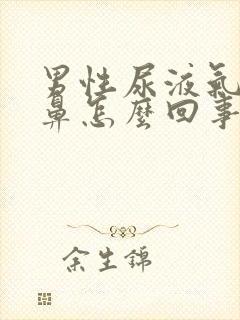 男性尿液氣
鼻怎麼回事
余生錦